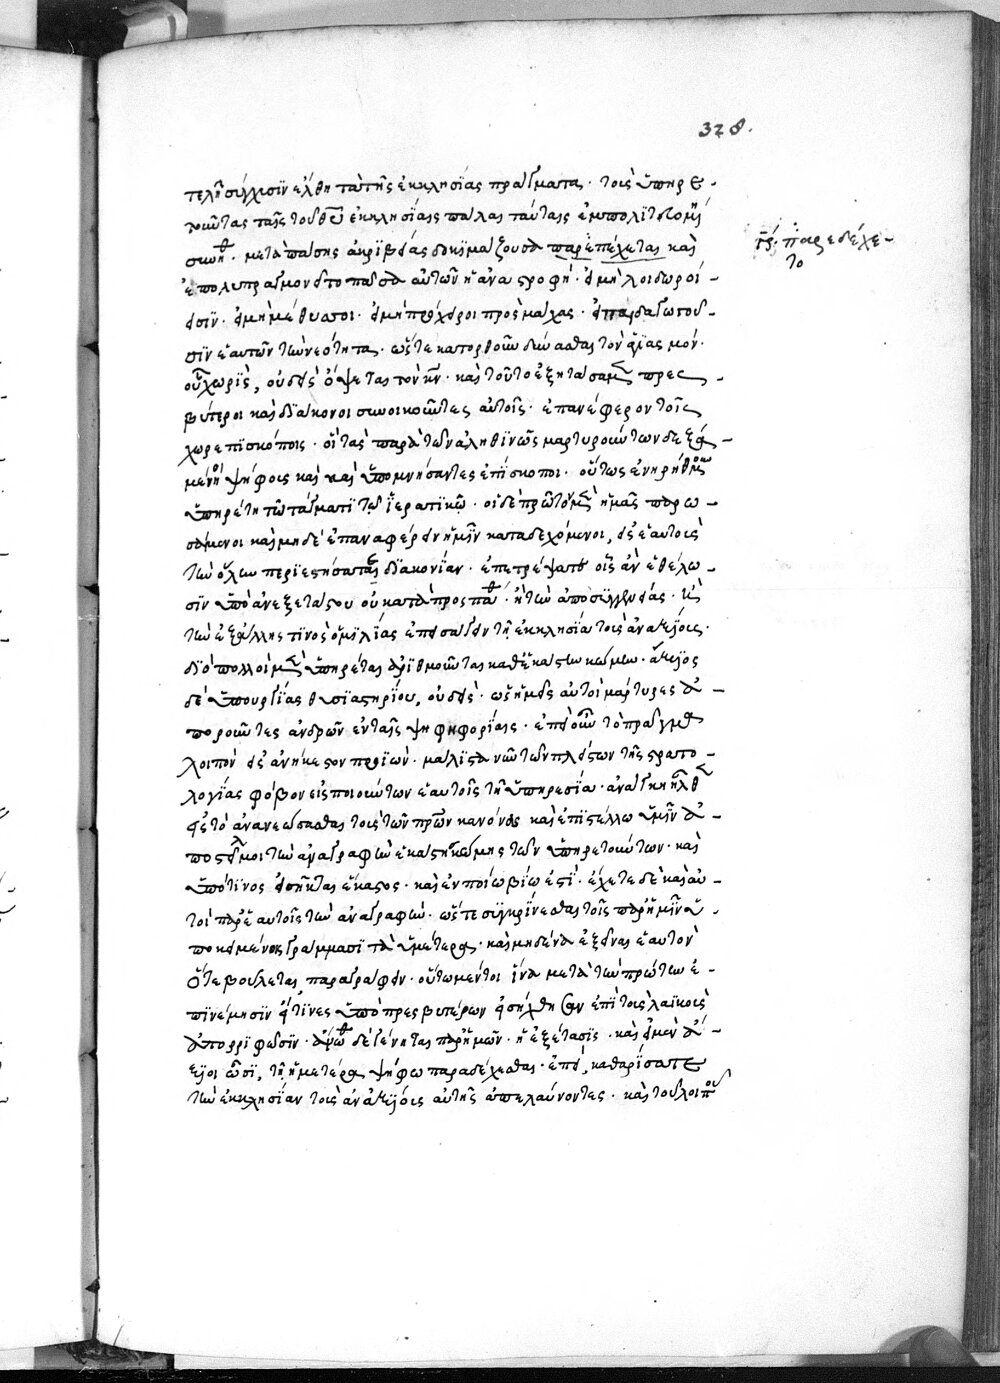 328.
τελῆ σύγχυσϊν ἔλθη τὰ τῆς ἐκκλησίας πράγματα· τοὺς ὑπηρε-
τοῦντας ταῖς τοῦ θῦ ἐκκλησίαις πάλαι ταύταις ἐμπολϊτευομένη
συνήθ· μετὰ πάσης ἀκρϊβείας δοκϊμάζουσα παρεπέχεται καὶ
γρ. παρεδέχε-
το
ἐπολυπραγμονεῖτο πᾶσα αὐτῶν ἡ ἀναστροφή· εἰ μὴ λοιδωροί-
εισϊν· εἰ μὴ μέθυσοι· εἰ μὴ πρόχειροι πρὸς μάχας· εἰ παιδαγωγοῦ-
σϊν ἑαυτῶν τὴν νεότητα· ὥστε κατορθοῦν δύνασθαι τὸν ἁγίας μόν·
οὗ χωρὶς, οὐδεὶς ὄψεται τὸν κν· καὶ τοῦτο ἐξητασαμεν πρεσ-
βύτεροι καὶ δϊάκονοι συνοικοῦντες αὐτοῖς· ἐπανέφερον τοῖς
χωρεπϊσκόποις· οἳ τὰς παρὰ τῶν ἀληθϊνῶς μαρτυρούντων δεξά-
μενοι ψήφοις καὶ καὶ ὑπομνήσαντες ἐπίσκοποι· οὕτως ἐνηρίθμουν
ὑπηρέτη τῶ τάγματϊ τῶ ἱερατϊκῶ· οἱ δὲ πρῶτον μὲν ἡμᾶς παρω-
σάμενοι καὶ μηδὲ ἐπαναφέρειν ἡμῖν καταδεχόμενοι, εἰς ἑαυτοὺς
τὴν ὅλην περϊεστήσατε δϊακονίαν· ἐπετρέψατε οἷς ἂν ἐθέλω-
σϊν ὑπὸ ἀνεξετάστου οὐ κατὰ προσπάθ· ἢ τὴν ἀπὸ συγγενείας· ἢ
τὴν ἐξ ἄλλης τϊνὸς ὁμϊλίας ἐπεισαγειν τῆ ἐκκλησία τοὺς ἀναξίους·
δϊὸ πολλοὶ μὲν ὑπηρέται ἀρϊθμοῦνται καθ' ἑκάστην κώμην· ἄξϊος
δὲ ὑπουργίας θυσϊαστηρίου, οὐδεὶς· ὡς ἡμεῖς αὐτοὶ μάρτυρες ἀ-
ποροῦντες ἀνδρῶν ἐν ταῖς ψηφηφορίαις· ἐπεὶ οὖν τὸ πρᾶγμα
λοιπὸν εἰς ἀνήκεστον προϊών· μάλϊστα νῦν τῶν πλείστων τῆς στρατο-
λογίας φόβον εἰσποιούντων ἑαυτοῖς τῆ ὑπηρεσία· ἀναγκη ἦλθεν
εἰς τὸ ἀνανεώσασθαι τοὺς τῶν πρων κανόνας καὶ ἐπϊστέλλω ὑμῖν ἀ-
ποστεῖλαί μοι τὴν ἀναγραφὴν ἑκάστης κώμης τῶν ὑπηρετούντων· καὶ
ὑπὸ τίνος εἰσῆκται ἕκαστος· καὶ ἐν ποίω βίω ἐστὶ· ἔχετε δὲ καὶ αὐ-
τοὶ παρ' ἑαυτοῖς τὴν ἀναγραφὴν· ὥστε συγκρίνεσθαι τοῖς παρ' ἡμῖν ἀ-
ποκειμένοις γράμμασϊ τὰ ὑμέτερα· καὶ μηδένα ἐξεῖναι ἑαυτὸν
ὅτε βούλεται, παραγράφειν· οὕτω μέντοι ἵνα μετὰ τὴν πρώτην ἐ-
πϊνέμησϊν εἴτϊνες ὑπὸ πρεσβυτέρων εἰσήχθησαν ἐπὶ τοὺς λαϊκοὺς
ἀπορριφῶσϊν· ἄνωθ δὲ γένηται παρ' ἡμῶν· ἡ ἐξέτασϊς· καὶ εἰ μὲν ἄ-
ξϊοι ὦσϊ, τῆ ἡμετέρα ψήφω παραδέχεσθαι· ἐπεί, καθαρίσατε
τὴν ἐκκλησίαν τοὺς ἀναξίοις αὐτῆς ἀπελαύνοντες· καὶ τοῦ λοιποῦ